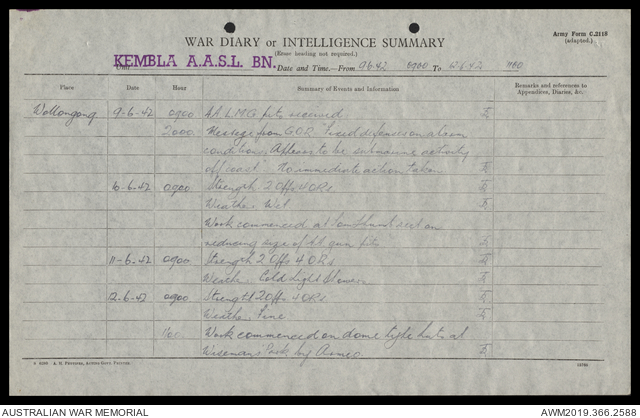 Army Form C.2118
(adapted.)
WAR DIARY or INTELLIGENCE SUMMARY
(Erase heading not required.)
KEMBLA A.A.S.L. BN.
Unit
Date and Time.—From 9.6.42 0900 To 12.6.42 1100
Place Date Hour Summary of Events and Information Remarks and references to Appendices, Diaries, &c.
Wollongong 9-6-42 0900 A.A.L.M.G pits received
2000. Message from G.O.R. "Fixed defenses on alarm
condition. Appears to be submarine activity
off coast" No immediate action taken
10-6-42 0900 Strength 2 Offs 4 ORs.
Weather Wet
Work commenced at Southern sect on
reducing size of AA gun pits
11-6-42 0900 Strength 2 Offs 4 ORs
Weather Cold Light Showers
12-6-42 0900 Strength 2 Offs 4 ORs.
Weather Fine
1100 Work commenced on dome type huts at
Wiseman's Park by
AUSTRALIAN WAR MEMORIAL
AWM2019.366.2588